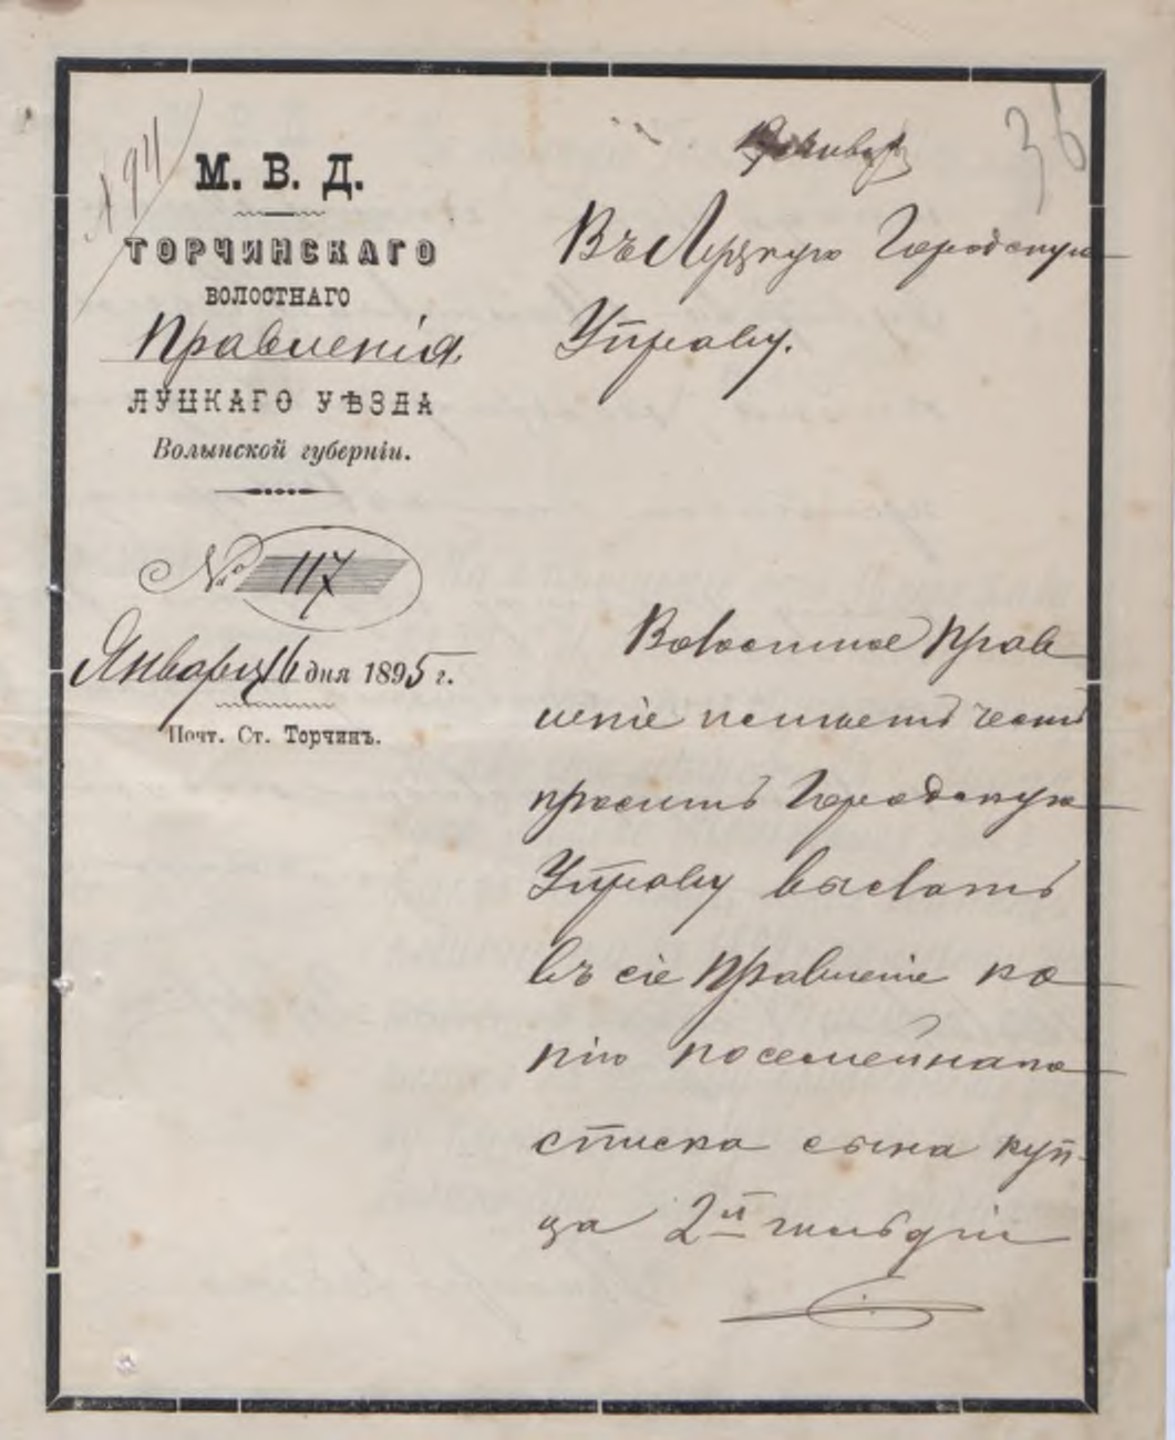 № 94
М. В. Д.
ТОРЧИНСКАГО
ВОЛОСТНАГО
Правленія
ЛУЦКАГО УѢЗДА
Волынской губерніи.
№ 117
Января 16 дня 1895 г.
Почт. Ст. Торчинъ.
36
Въ Луцкую Городскую
Управу.
Волостное Прав
леніе имѣетъ честь
просить Городскую
Управу выслать
въ сіе Правленіе ко
пію посемейнаго
списка сына куп-
ца 2й гильдіи